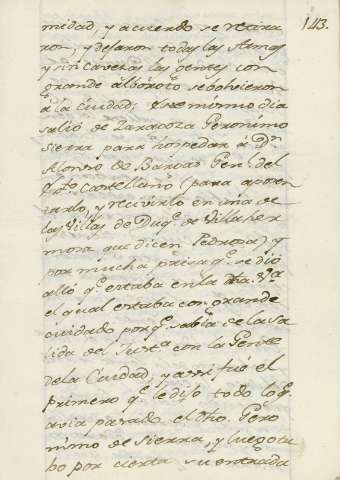 143.
midad, y acuerdo se retira
ron, y dejaron todas las Armas
y sin caveza las gentes con
grande alboroto se bolvieron
a la ciudad; ese mismo dia
salió de Zaragoza Geronimo
Sierra para hospedar a Dn
Alonso de Bargas Genl. del
Castellano (para aposen
tarlo, y recivirlo en una de
las Villas de Duqe. de Villaher
mosa que dicen Pedrosa) y
por mucha prisa qe. se dió
alló qe. estaba en la dha. Va.
el qual estaba con grande
cuidado porqe. sabia de la sa
lida del Justa. con la Gente
de la Ciudad, y assi fué el
primero qe. le dijo todo lo qe.
avia pasado el dho. Gero
nimo de Sierra, y luego tu
bo por cierta su entrada